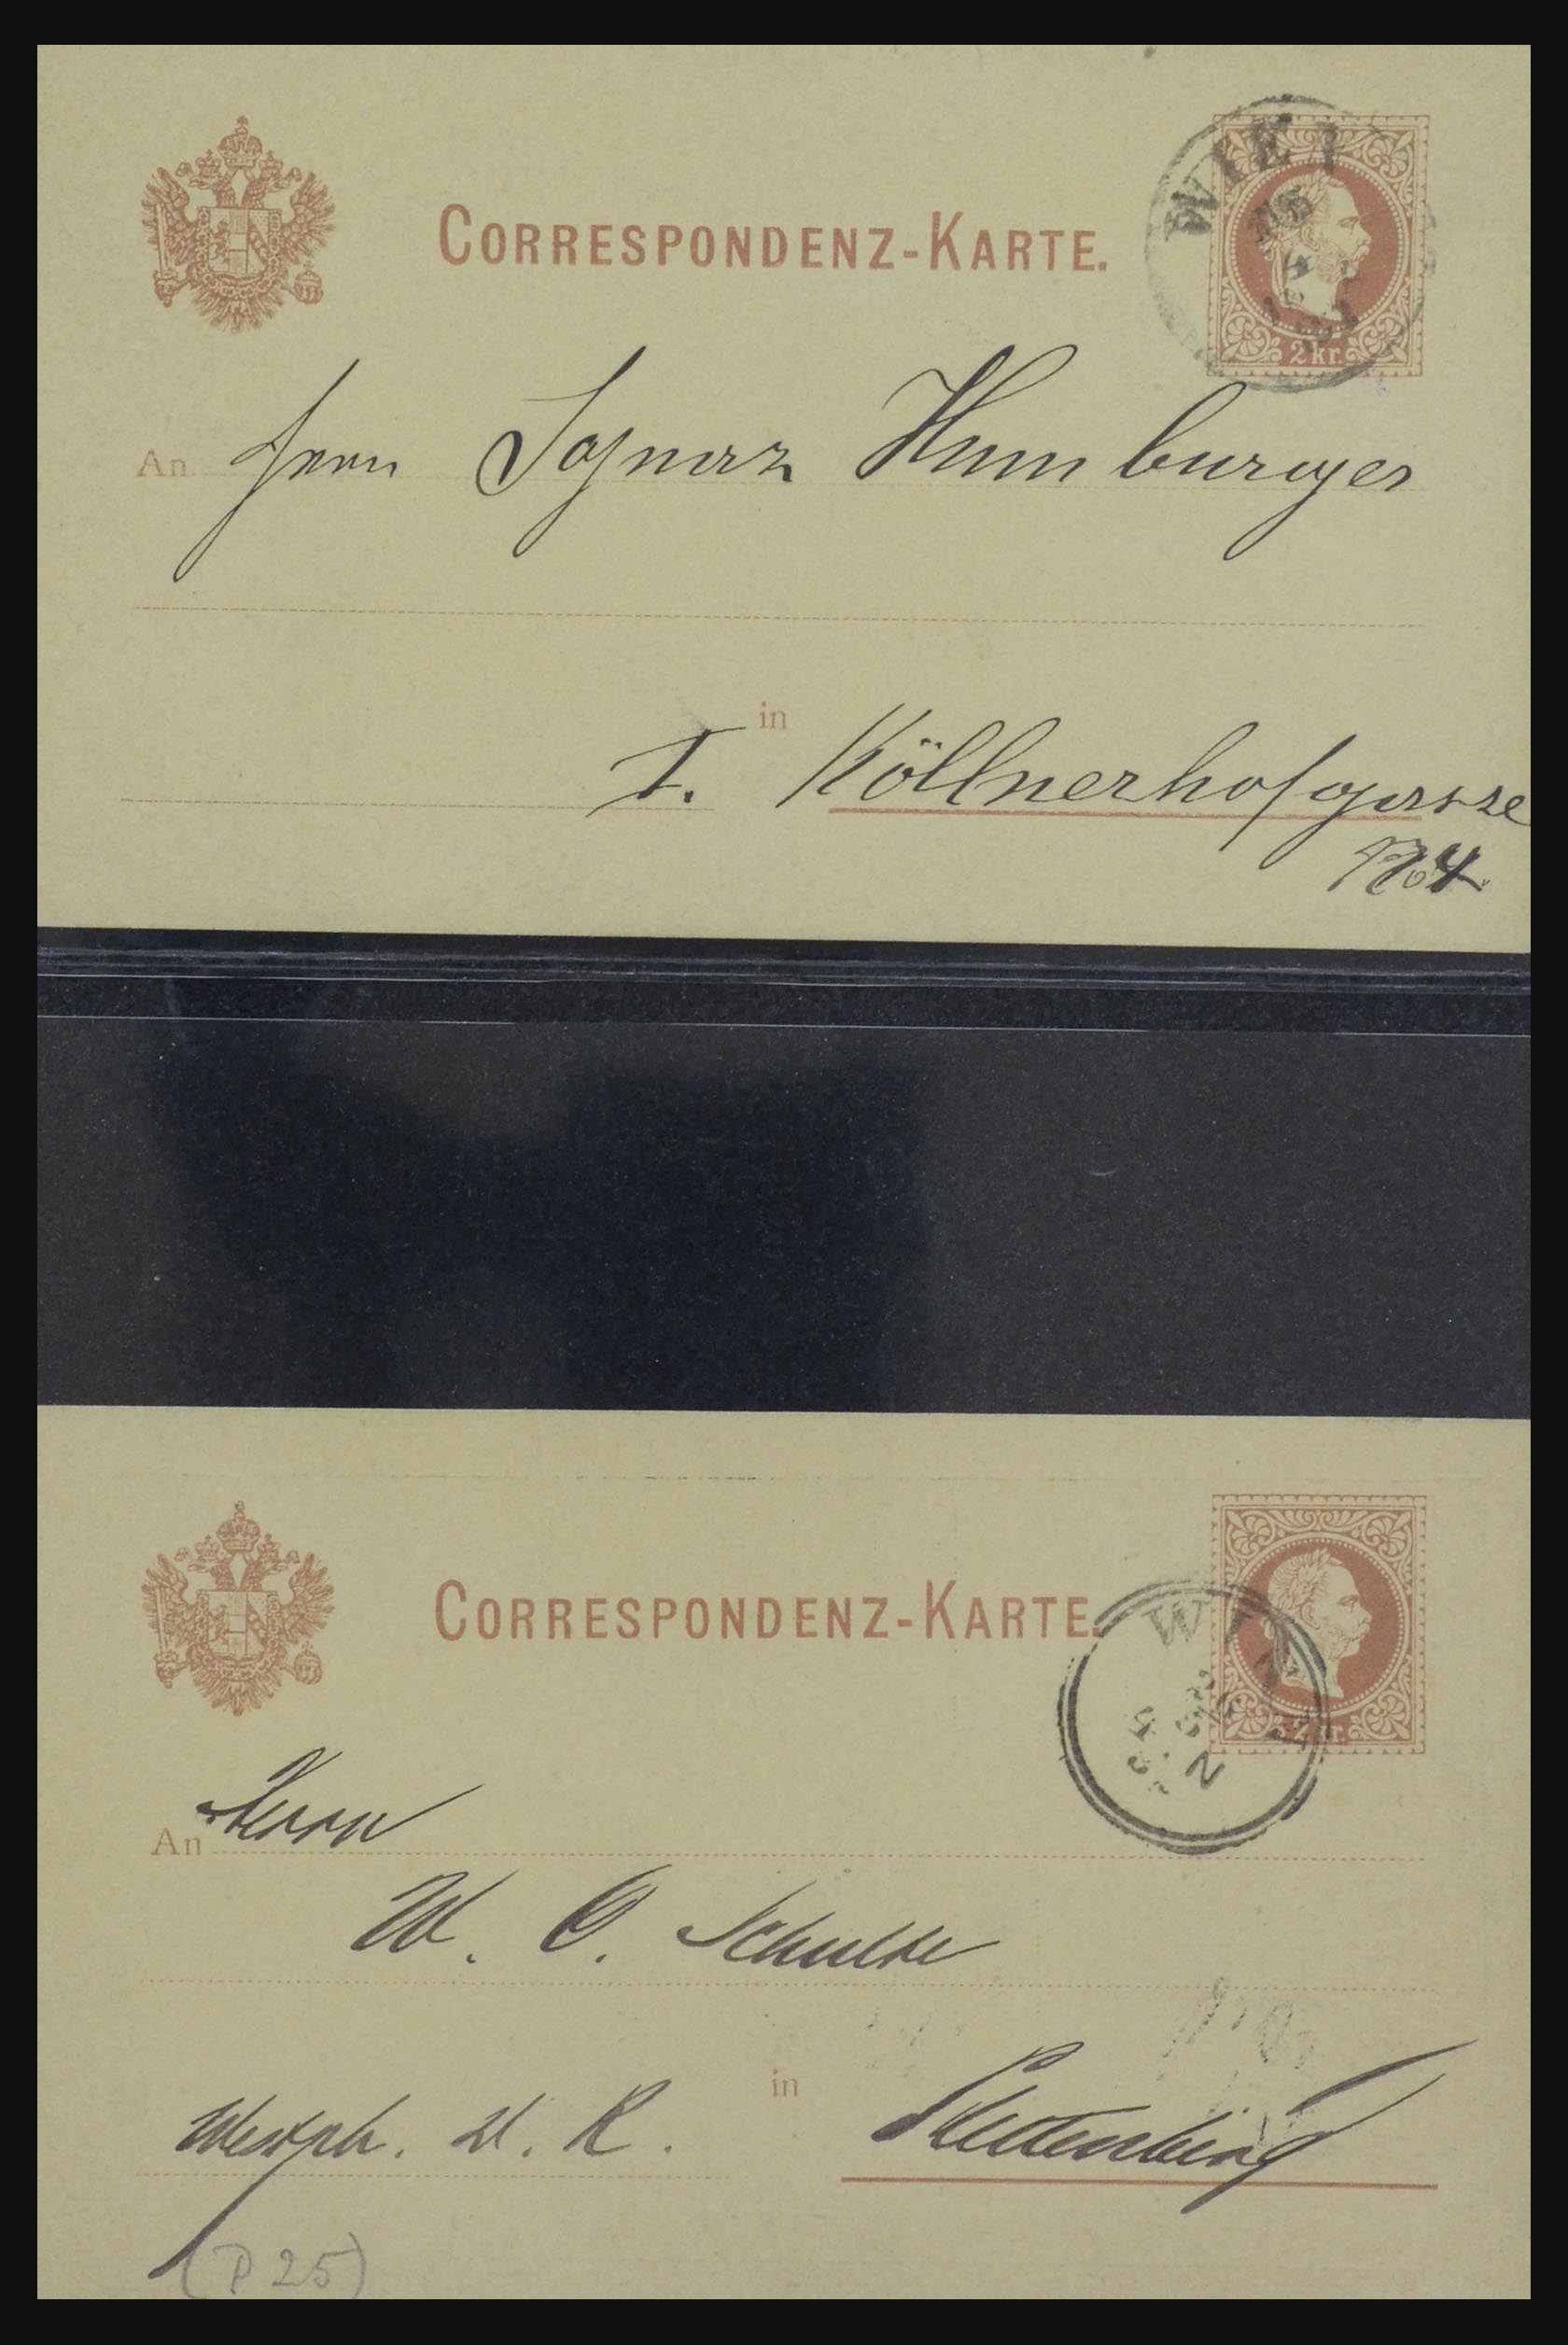 CORRESPONDENZ-KARTE.
WIEN
2 kr.
An Herrn Ignaz Hamburger
in
I. Köllnerhofgasse
No 4.
CORRESPONDENZ-KARTE.
WIEN
2 kr.
An Herrn
W. O. Schulte
in
Westph. D. R. Plettenberg
(P 25)